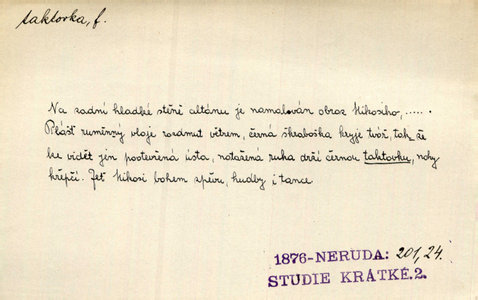 taktovka, f.
Na zadní hladké stěně altánu je namalován obraz Mikosiho, .....
Plášť ruměnný vloje rozdmut větrem, černá škraboška kryje tvář, tak že
lze vidět jen pootevřená ústa, natažená ruka drží černou taktovku, nohy
křepčí. Jeť Mikosi bohem zpěvu, hudby i tance
1876-NERUDA: 201,24.
STUDIE KRÁTKÉ.2.